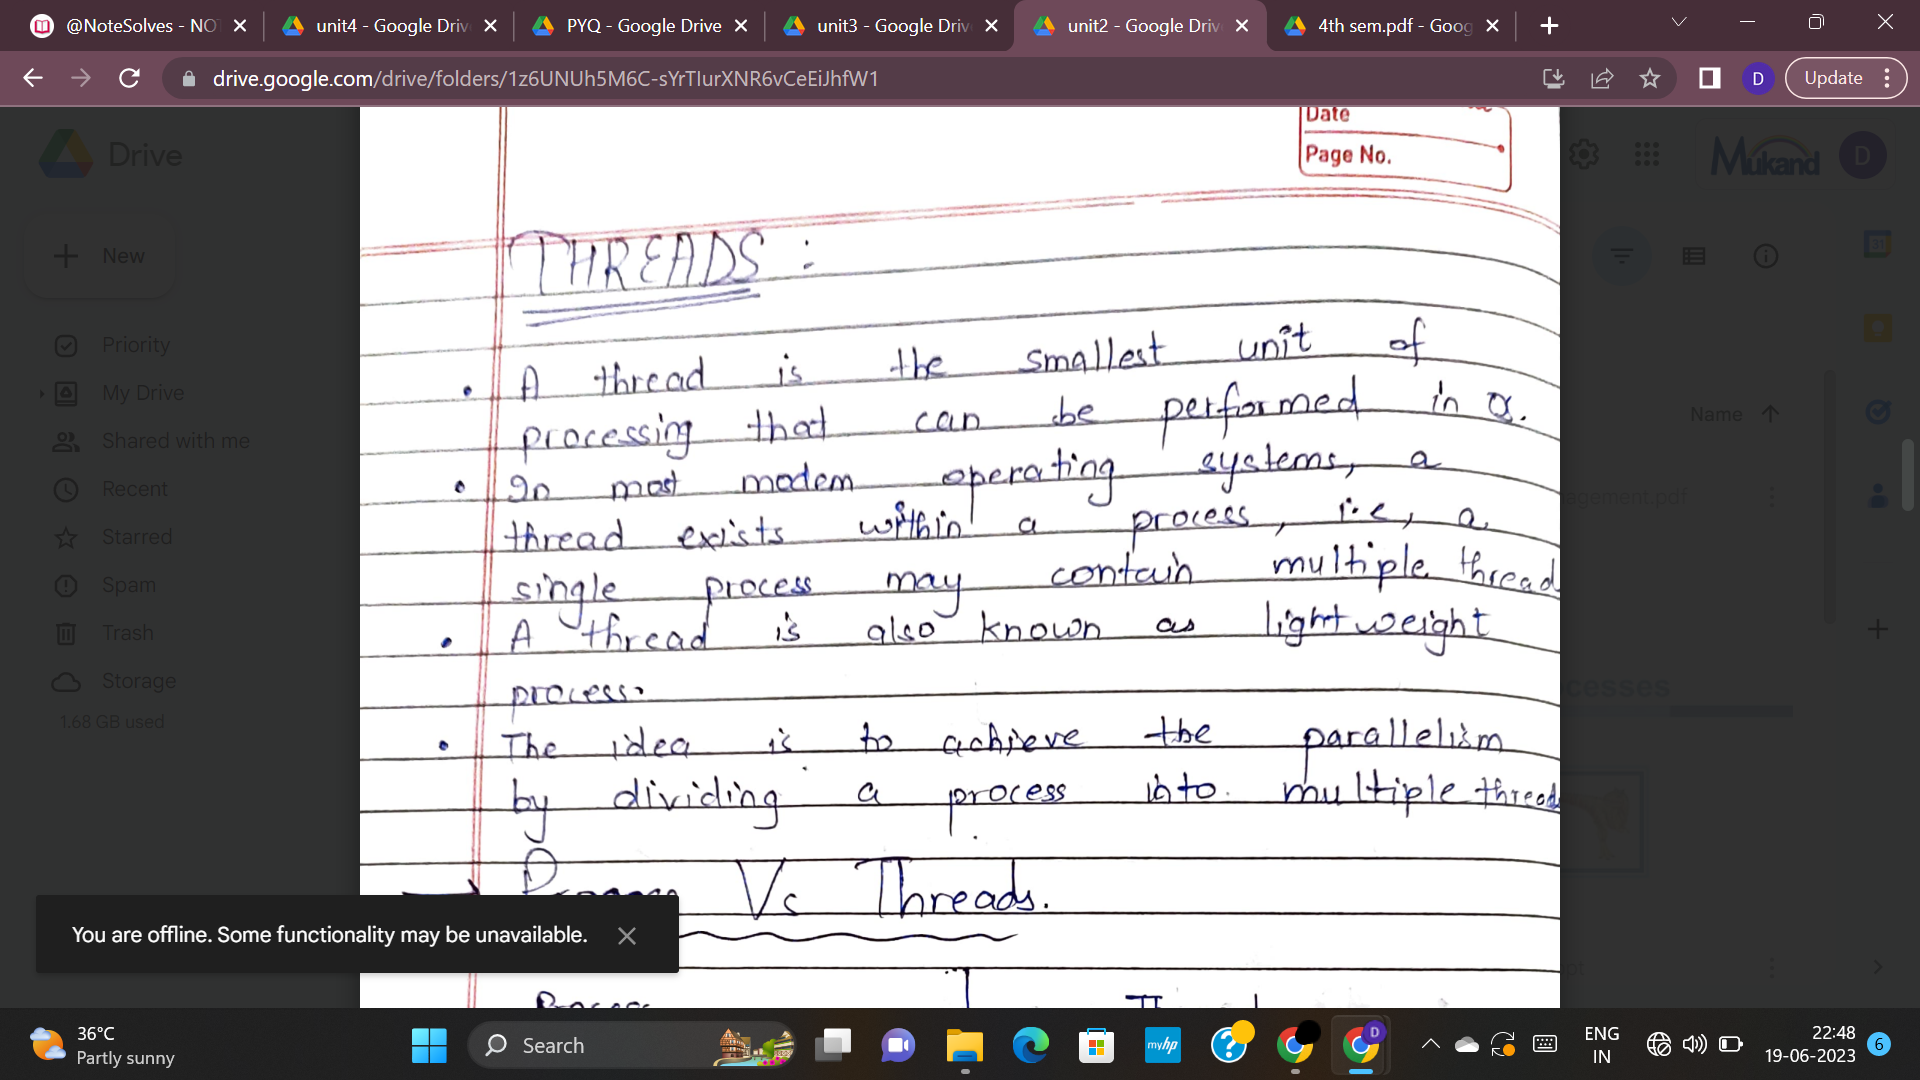 @NoteSolves - NO
unit4 - Google Driv
PYQ - Google Drive
unit3 - Google Driv
unit2 - Google Driv
4th sem.pdf - Goog
drive.google.com/drive/folders/1z6UNUh5M6C-sYrTIurXNR6vCeEiJhfW1
D
Update
Drive
Date
Page No.
Mukand
D
New
Priority
My Drive
Shared with me
Recent
Starred
Spam
Trash
Storage
1.68 GB used
Name
agement.pdf
cesses
THREADS :
• A thread is the smallest unit of
processing that can be performed in a.
• In most modem operating systems, a
thread exists within a process, i.e, a
single process may contain multiple thread
• A thread is also known as lightweight
process.
• The idea is to achieve the parallelism
by dividing a process into multiple thread
Process Vs Threads.
You are offline. Some functionality may be unavailable.
Process
36°C
Partly sunny
Search
myhp
D
ENG
IN
22:48
19-06-2023
6